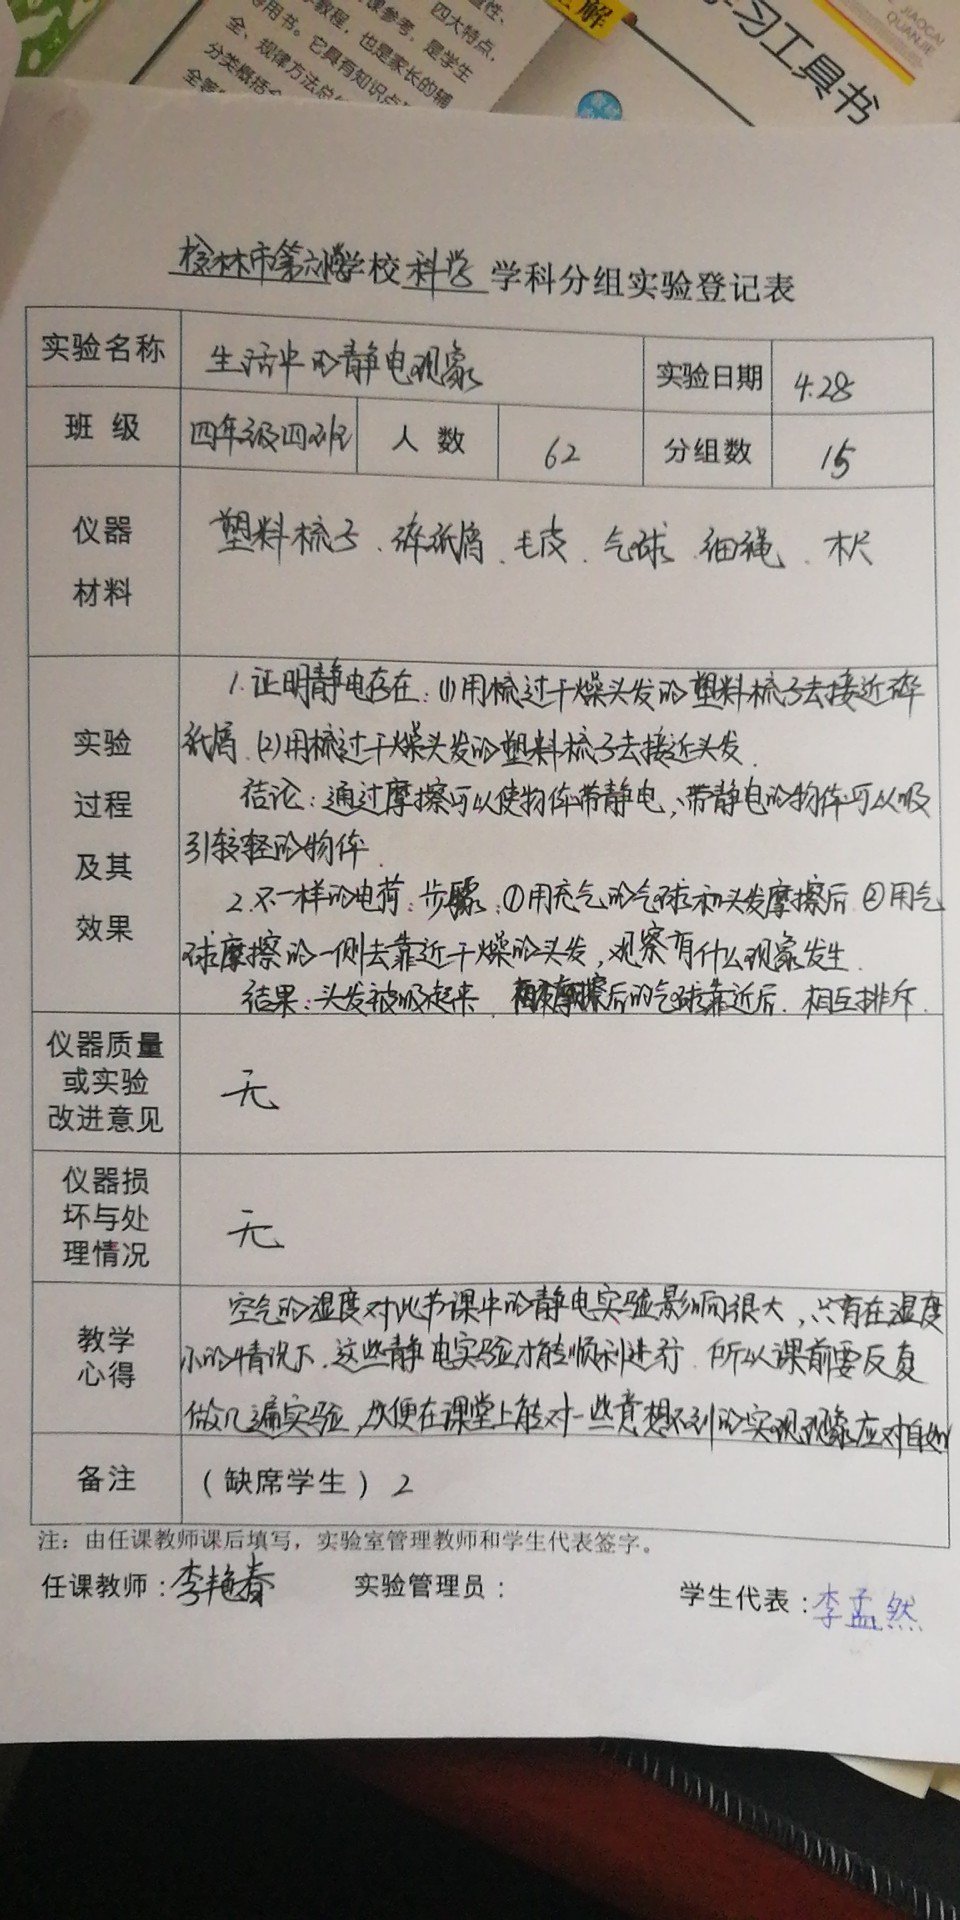 全、规律方法总
分类概括
四大特点，
教程，也是家长的辅
用书。它具有知识点
课参考，是学生
解
习工具书
JIAOCAI
QUANJIE
榆林市第六小学校科学学科分组实验登记表
实验名称 生活中的静电现象 实验日期 4.28
班 级 四年级四班 人 数 62 分组数 15
仪器材料 塑料梳子、碎纸屑、毛皮、气球、细绳、木尺
实验过程及其效果
1.证明静电存在：(1)用梳过干燥头发的塑料梳子去接近碎
纸屑.(2)用梳过干燥头发的塑料梳子去接近头发.
结论：通过摩擦可以使物体带静电、带静电的物体可以吸
引较轻的物体.
2.不一样的电荷：步骤：①用充气的气球和头发摩擦后.②用气
球摩擦的一侧去靠近干燥的头发，观察有什么现象发生.
结果：头发被吸起来.摩擦后的气球靠近后.相互排斥.
仪器质量或实验改进意见 无
仪器损坏与处理情况 无
教学心得
空气的湿度对此节课中的静电实验影响很大，只有在湿度
小的情况下.这些静电实验才能顺利进行.所以课前要反复
做几遍实验，以便在课堂上能对一些意想不到的实现现象应对自如
备注 （缺席学生）2
注：由任课教师课后填写，实验室管理教师和学生代表签字。
任课教师：李艳春 实验管理员： 学生代表：李孟然